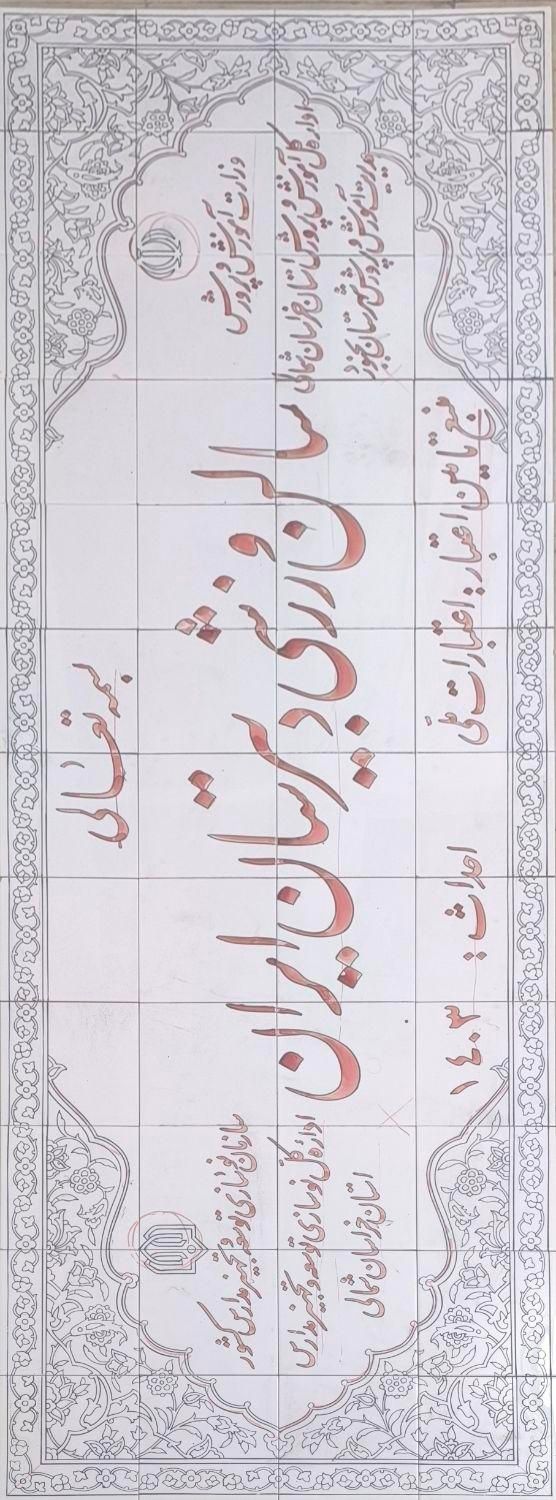 بسمه تعالی
وزارت آموزش و پرورش
اداره کل آموزش و پرورش استان خراسان شمالی
مدیریت آموزش و پرورش شهرستان بجنورد
سالن ورزشی دبیرستان ایران
سازمان نوسازی توسعه و تجهیز مدارس کشور
اداره کل نوسازی توسعه و تجهیز مدارس
استان خراسان شمالی
منبع تامین اعتبار: اعتبارات ملی
احداث: ۱۴۰۳